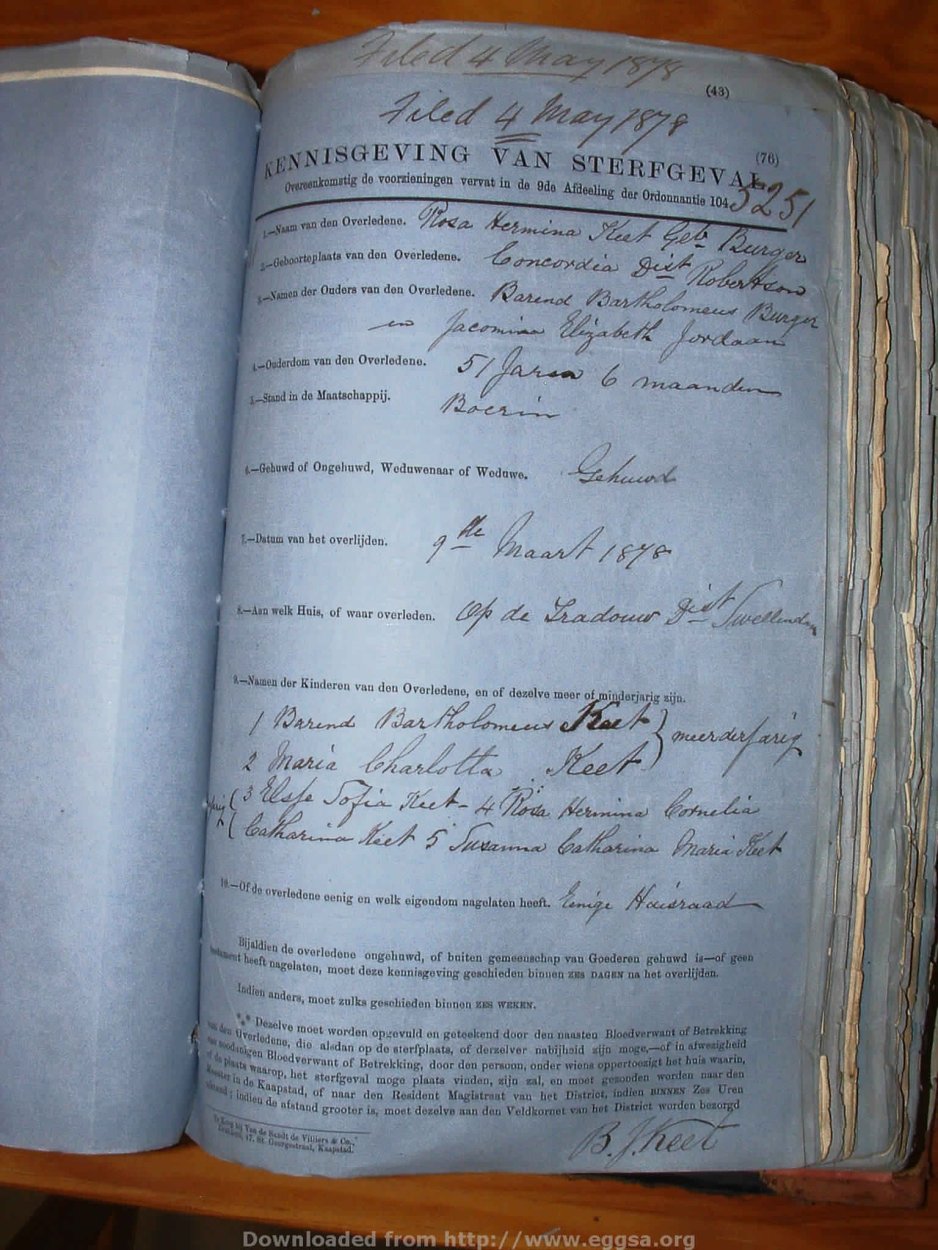 Filed 4 May 1878
(43)
Filed 4 May 1878
(76)
KENNISGEVING VAN STERFGEVAL
Overeenkomstig de voorzieningen vervat in de 9de Afdeeling der Ordonnantie 104
3251
1.—Naam van den Overledene. Rosa Hermina Keet Geb Burger
2.—Geboorteplaats van den Overledene. Concordia Dist Robertson
3.—Namen der Ouders van den Overledene. Barend Bartholomeus Burger
en Jacomina Elizabeth Jordaan
4.—Ouderdom van den Overledene. 51 Jaren 6 maanden
5.—Stand in de Maatschappij. Boerin
6.—Gehuwd of Ongehuwd, Weduwenaar of Weduwe. Gehuwd
7.—Datum van het overlijden. 9de Maart 1878
8.—Aan welk Huis, of waar overleden. Op de Tradouw Dist Swellendam
9.—Namen der Kinderen van den Overledene, en of dezelve meer of minderjarig zijn.
1 Barend Bartholomeus Keet } meerderjarig
2 Maria Charlotta Keet
3 Elsje Sofia Keet - 4 Rosa Hermina Cornelia
Catharina Keet 5 Susanna Catharina Maria Keet
10.—Of de overledene eenig en welk eigendom nagelaten heeft. Einige Huisraad
Bijaldien de overledene ongehuwd, of buiten gemeenschap van Goederen gehuwd is—of geen
testament heeft nagelaten, moet deze kennisgeving geschieden binnen ZES DAGEN na het overlijden.
Indien anders, moet zulks geschieden binnen ZES WEKEN.
Dezelve moet worden opgevuld en geteekend door den naasten Bloedverwant of Betrekking
van den Overledene, die alsdan op de sterfplaats, of derzelver nabijheid zijn moge,—of in afwezigheid
van zoodanigen Bloedverwant of Betrekking, door den persoon, onder wiens oppertoezigt het huis waarin,
of de plaats waarop, het sterfgeval moge plaats vinden, zijn zal, en moet gezonden worden naar den
Meester in de Kaapstad, of naar den Resident Magistraat van het District, indien BINNEN Zes Uren
afstand; indien de afstand grooter is, moet dezelve aan den Veldkornet van het District worden bezorgd
Te Koop bij Van de Sandt de Villiers & Co.,
Drukkers, 17, St. Georgestraat, Kaapstad.
B. J. Keet
Downloaded from http://www.eggsa.org